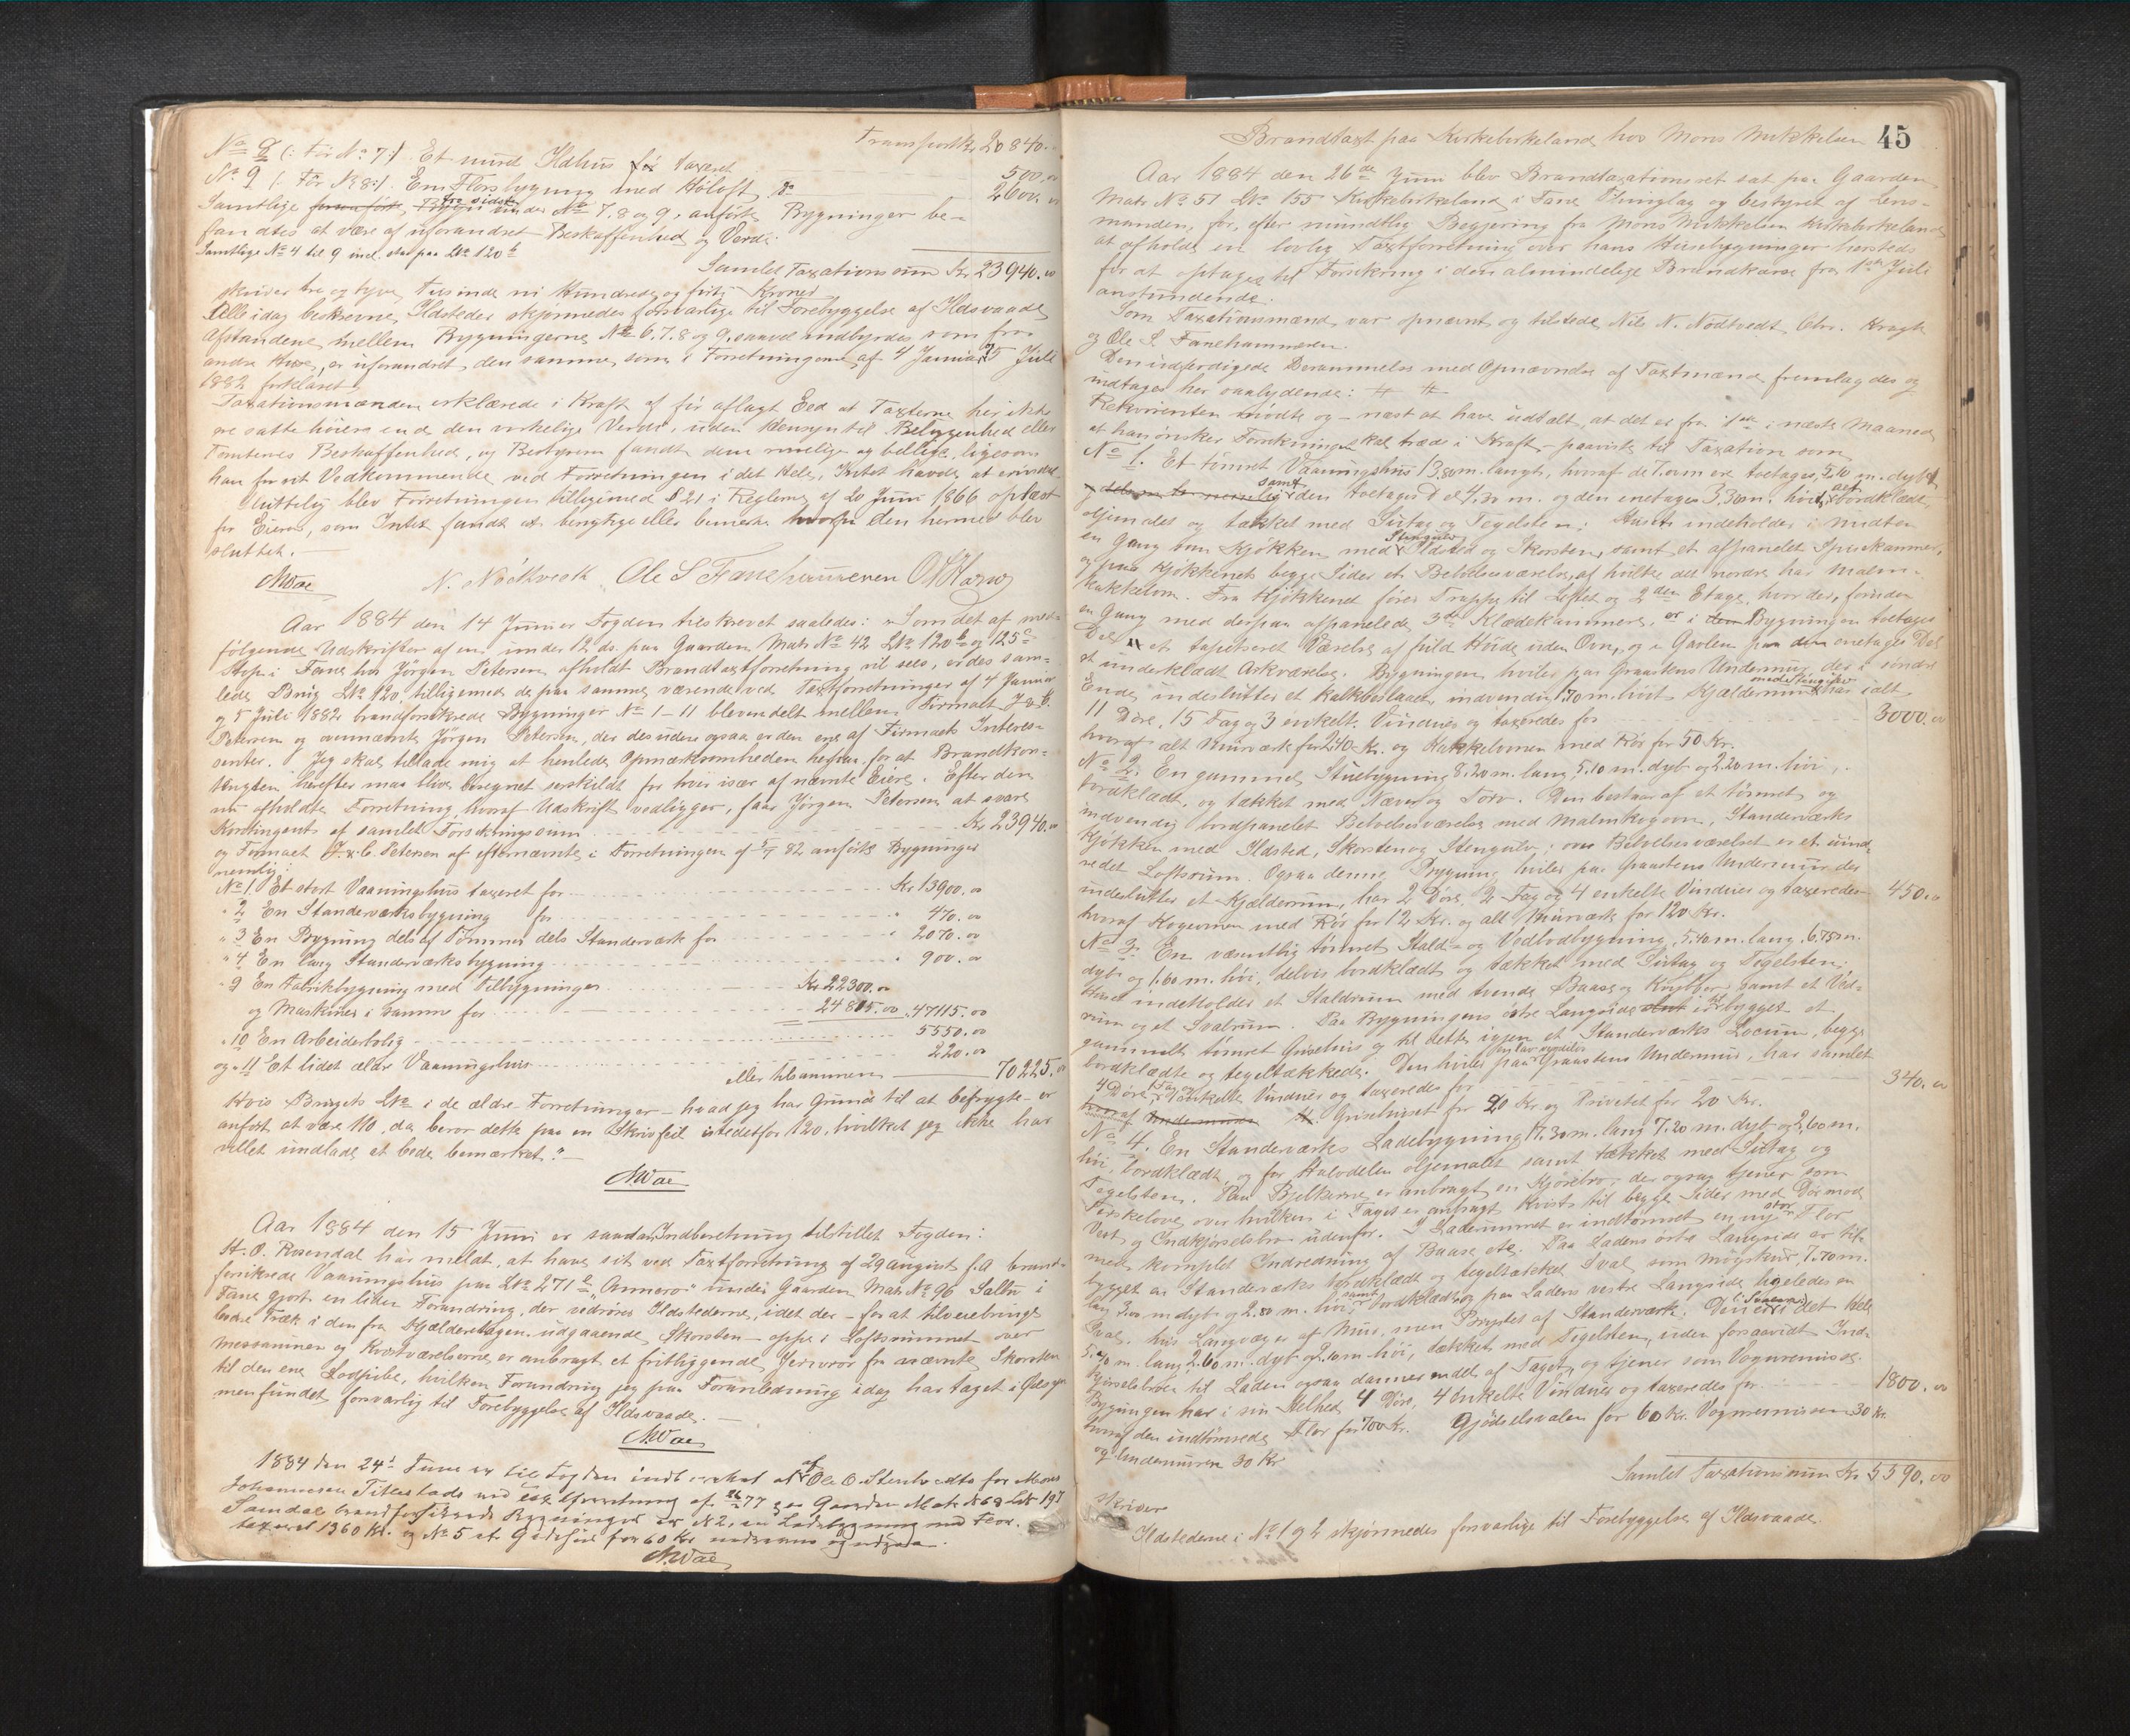 Transport Kr. 20840.
No 8 (: Før No 7:). Et muret Ildhus før taxeret 500.00
No 9 (: Før No 8:). Em Florsbygning med Høloft do 2600.00
Samtlige under No 7, 8 og 9, anførte Bygninger be-
fandtes at være af uforandret Beskaffenhed og Værdi.
Samtlige No 4 til 9 incl. staa paa Lno 120 b
Samlet Taxationssum Kr. 23940.00
skriver tre og tyve tusinde ni Hundrede og firti Kroner.
Alle idag beskrevne Ildsteder skjønnedes forsvarlige til Forebyggelse af Ildsvaade.
Afstandene mellem Bygningerne No 6, 7, 8 og 9, saavel indbyrdes som fra
andre Huse, er uforandret den samme, som i Forretningerne af 4 Januar 5 Juli
1882 forklaret.
Taxationsmændene erklærede i Kraft af før aflagt Eed at Taxterne her ikke
ere satte høiere end den virkelige Værdi, uden Hensyn til Beliggenhed eller
Tomtenes Beskaffenhed, og Bestyreren fandt dem rimelige og billige, ligesom
han for sit Vedkommende ved Forretningen i det Hele, Intet havde at erindre.
Sluttelig blev Forretningen tilligemed § 21 i Reglerne af 20 Juni 1866 oplæst
for Eieren, som Intet fandt at benytte eller bemærke hvorfor den hermed blev
sluttet. —
N. Nödtvedt Ole S Fanehammeren
Aar 1884 den 14 Juni er Fogden tilskrevet saaledes: „Som det af med-
følgende Udskrifter af en under 12 ds. paa Gaarden Matr No 42 Lno 120 b og 125 c
Hop i Fane hos Jørgen Petersen afholdt Brandtaxtforretning vil sees, er des sam-
lede Brug Lno 120, tilligemed de paa samme værende ved Taxtforretninger af 4 Januar
og 5 Juli 1882 brandforsikrede Bygninger No 1-11 blevne delt mellem Firmaet J & C.
Petersen og ovennævnte Jørgen Petersen, der desuden ogsaa er den ene af Firmaets Interes-
senter. Jeg skal tillade mig at henlede Opmærksomheden herpaa for at Brandkon-
tingenten herefter maa blive beregnet særskildt for hver især af nævnte Eiere. Efter den
nu afholdte Forretning, hvoraf Udskrift vedligger, faar Jørgen Petersen at svare
Kontingent af samlet Forsikringssum Kr. 23940.00
og Firmaet J. & C. Petersen af efternævnte i Forretningen af 5/7 82 anførte Bygninger
nemlig:
No 1. Et stort Vaaningshus taxeret for Kr 13900.00
„ 2 En Standerværksbygning for „ 470.00
„ 3 En Bygning dels af Tømmer dels Standerværk for „ 2070.00
„ 4 En lang Standerværksbygning „ 900.00
„ 9 En Fabrikbygning med Tilbygninger Kr 22300.00
og Maskiner i samme for 24815.00 „ 47115.00
„ 10 En Arbeiderbolig 5550.00
og „ 11 Et lidet ældre Vaaningshus 220.00
eller tilsammen 70225.00
Hvis Brugets Lno i de ældre Forretninger — hvad jeg har Grund til at befrygte — er
anført at være 110, da beror dette paa en Skrivfeil istedetfor 120, hvilket jeg ikke har
villet undlade at bede bemærket." —
Aar 1884 den 15 Juni er saadan Indberetning tilstillet Fogden:
H. O. Rosendal har meldt, at have sit ved Taxtforretning af 29 August f. A brand-
forsikrede Vaaningshus paa Lno 271 b „Annero" under Gaarden Matr No 96 Sælen i
Fane gjort en liden Forandring, der vedrører Ildstederne, idet der — for at tilveiebringe
bedre Træk i den fra Kjælderetagen udgaaende Skorsten — oppe i Loftsrummet over
Messaninen og Kvistværelserne er anbragt et fritliggende Jernrør fra nævnte Skorsten
til den ene Lodpibe, hvilken Forandring jeg paa Foranledning idag har taget i Øiesyn
men fundet forsvarlig til Forebyggelse af Ildsvaade. —
1884 den 24de Juni er til Fogden indberettet at af Ole O. Stenhvedts for Mons
Johannesen Titlestads ved Taxtforretning af 77 paa Gaarden Matr No 68 Lno 197
Samdal brandforsikrede Bygninger er No 2, en Ladebygning med Flor,
taxeret 1360 Kr. og No 5 et Gjedehus for 60 Kr nedrevne og udgaar.

Brandtaxt paa Kirkebirkeland hos Mons Mikkelsen 45
Aar 1884 den 26de Juni blev Brandtaxationsret sat paa Gaarden
Matr No 51 Lno 155 Kirkebirkeland i Fane Thinglag og bestyret af Lens-
manden, for, efter mundtlig Begjæring fra Mons Mikkelsen Kirkebirkeland
at afholde en lovlig Taxtforretning over hans Husebygninger hersteds
for at optages til Forsikring i den almindelige Brandkasse fra 1ste Juli
anstundende.
Som Taxationsmænd var opnævnt og tilstede Nils N. Nödtvedt, Chr. Kragh
og Ole S. Fanehammeren.
Den udfærdigede Berammelse med Opnævnelse af Taxtmænd fremlagdes og
indtages her saalydende: # #
Rekvirenten mødte og — næst at have udtalt, at det er fra 1ste i næste Maaned
at han ønsker Forsikringen skal træde i Kraft — paaviste til Taxation som
No 1. Et tømret Vaaningshus 13.80 m. langt, hvoraf de 7.00 m ere toetages, 5.10 m. dybt,
samt den toetages Del 4.30 m. og den enetages 3.30 m. høit, alt bordklædt,
oljemalet og tækket med Sutag og Tegelsten. Huset indeholder i Midten
en Gang som Kjøkken med Stengulv Ildsted og Skorsten, samt et afpanelet Spisekammer,
og paa Kjøkkenets begge Sider et Beboelsesværelse, af hvilke det nordre har Malm-
kakkelovn. Fra Kjøkkenet fører Trappe til Loftet og 2den Etage, hvor der, foruden
en Gang med derpaa afpanelede 3de Klædekammere, er i Bygningen toetages
Del et tapetseret Værelse af fuld Høide uden Ovn, og i Gavlen paa enetages Del
et underklædt Arkværelse. Bygningen hviler paa Graastens Undermur, der i søndre
Ende indeslutter et kalkbeslaaet, indvendig 1.70 m. høit Kjælderrum med Stengulv har ialt
11 Døre, 15 Fag og 3 enkelte Vinduer og taxeredes for 3000.00
hvoraf alt Murværk for 240 Kr. og Kakkelovnen med Rør for 50 Kr.
No 2. En gammel Stuebygning 8.20 m. lang 5.10 m. dyb og 2.20 m. høi,
bordklædt, og tækket med Næver og Torv. Den bestaar af et tømret og
indvendig bordpanelet Beboelsesværelse med Malmkogovn, Standerværks
Kjøkken med Ildsted, Skorsten og Stengulv; over Beboelsesværelset er et uind-
redet Loftsrum. Ogsaa denne Bygning hviler paa Graastens Undermur der
indeslutter et Kjælderrum, har 2 Døre, 2 Fag og 4 enkelte Vinduer og taxeredes 450.00
hvoraf Kogeovnen med Rør for 12 Kr. og alt Murværk for 120 Kr.
No 3. En væsentlig tømret Stald- og Vedbodbygning, 5.40 m. lang, 6.75 m.
dyb og 1.60 m. høi, delvis bordklædt og tækket med Sutag og Tegelsten;
Huset indeholder et Staldrum med tvende Baase og Krybber, samt et Ved-
rum og et Svalrum. Paa Bygningens østre Langside er tilbygget et
gammelt tømret Grisehus og til dette igjen et Standerværks Locum, begge
bordklædte og tegeltækkede. Den hviler paa Graastens Undermur, har samlet
4 Døre, 1 Fag og enkelte Vinduer og taxeredes for 340.00
hvoraf Grisehuset for 20 Kr og Privetet for 20 Kr.
No 4. En Standerværks Ladebygning 17.30 m. lang 7.20 m. dyb og 2.60 m.
høi, bordklædt, og for Halvdelen oljemalet samt tækket med Sutag og
Tegelsten. Paa Bjelkerne er anbragt en Kjørebro, der ogsaa tjener som
Tærskelove, over hvilken i Taget er anbragt Kviste til begge Sider med Dør mod
Vest og Indkjørselsbro udenfor. I Laderummet er indtømret en ny stor Flor
med komplet Indredning af Baase etc. Paa Ladens østre Langside er til-
bygget en Standerværks bordklædt og tegeltækket Sval som Møgskur, 7.70 m.
lang 3.00 m dyb og 2.80 m. høi, samt bordklædt, og paa Ladens vestre Langside ligeledes en
Sval, hvis Langvæg er af Mur, men Brystet af Standerværk. Den er i det Hele
5. m. lang 2.60 m. dyb og 2.10 m høi, tækket med Tegelsten, uden forsaavidt Ind-
kjørselsbroen til Laden ogsaa danner endel af Taget, og tjener som Vognremisse.
Bygningen har i sin Helhed 4 Døre, 4 enkelte Vinduer og taxeredes for 1800.00
hvoraf den indtømrede Flor for 700 Kr. Gjødselsvalen for 60 Kr. Vognremissen 30 Kr.
og Undermuren 30 Kr
Samlet Taxationssum Kr. 5590.00
skriver
Ildstederne i No 1 og 2 skjønnedes forsvarlige til Forebyggelse af Ildsvaade.